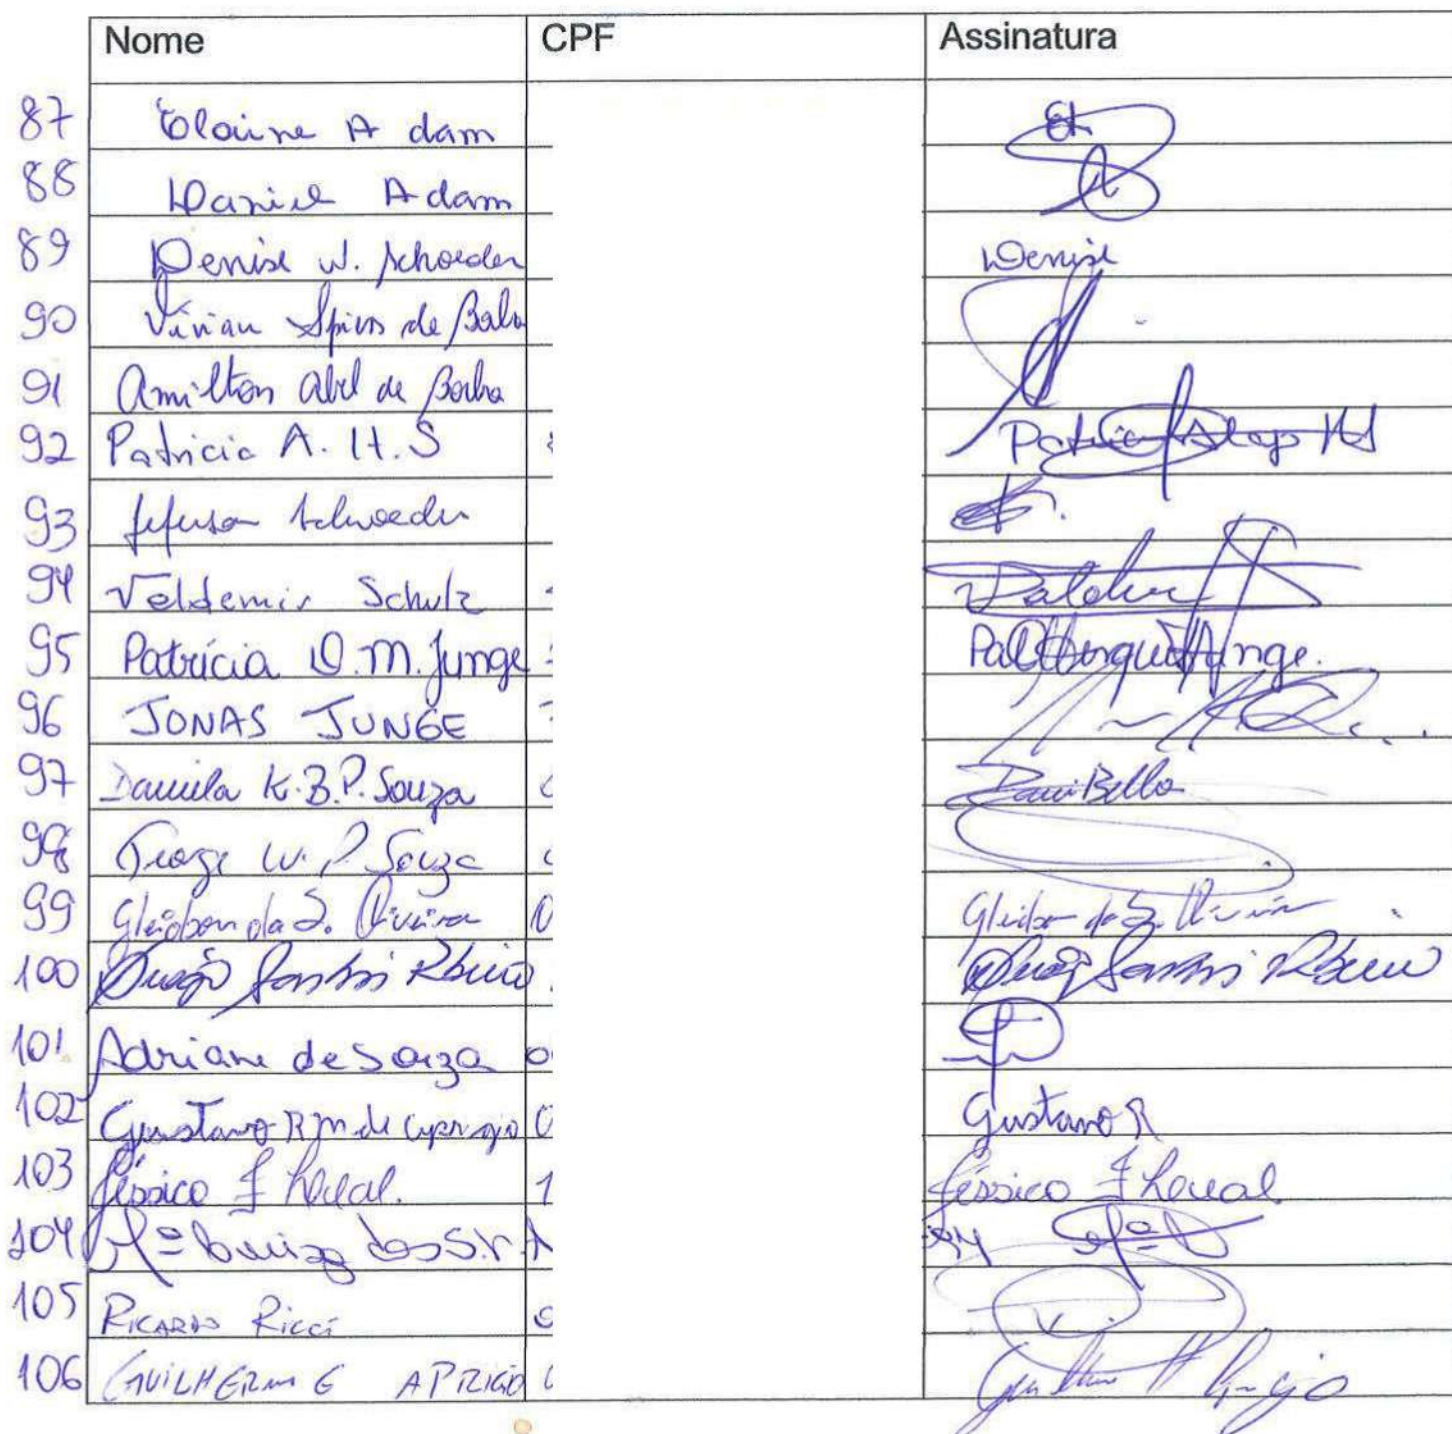 Nome CPF Assinatura
87 Elaine Adam El
88 Daniel Adam
89 Denise W. Schoeder Denise
90 Vivian Spiess de Borba
91 Amilton Abel de Borba
92 Patricia A. H. S Patricia
93 Jeferson Schroeder
94 Valdemir Schulz Valdemir
95 Patrícia D. M. Junge Junge.
96 JONAS JUNGE
97 Danuila K. B. P. Souza Dani Bello
98 George W. P. Souza
99 Gleidson da S. Oliveira Gleidson da S. Oliveira
100 Diogo Santos Ribeiro Diogo Santos Ribeiro
101 Adriane de Souza
102 Gustavo R Gustavo R
103 Jéssica F Jéssica F
104 Mª Luiza dos S.
105 RICARDO RICCI
106 GUILHERME APRIGIO Guilherme Aprigio